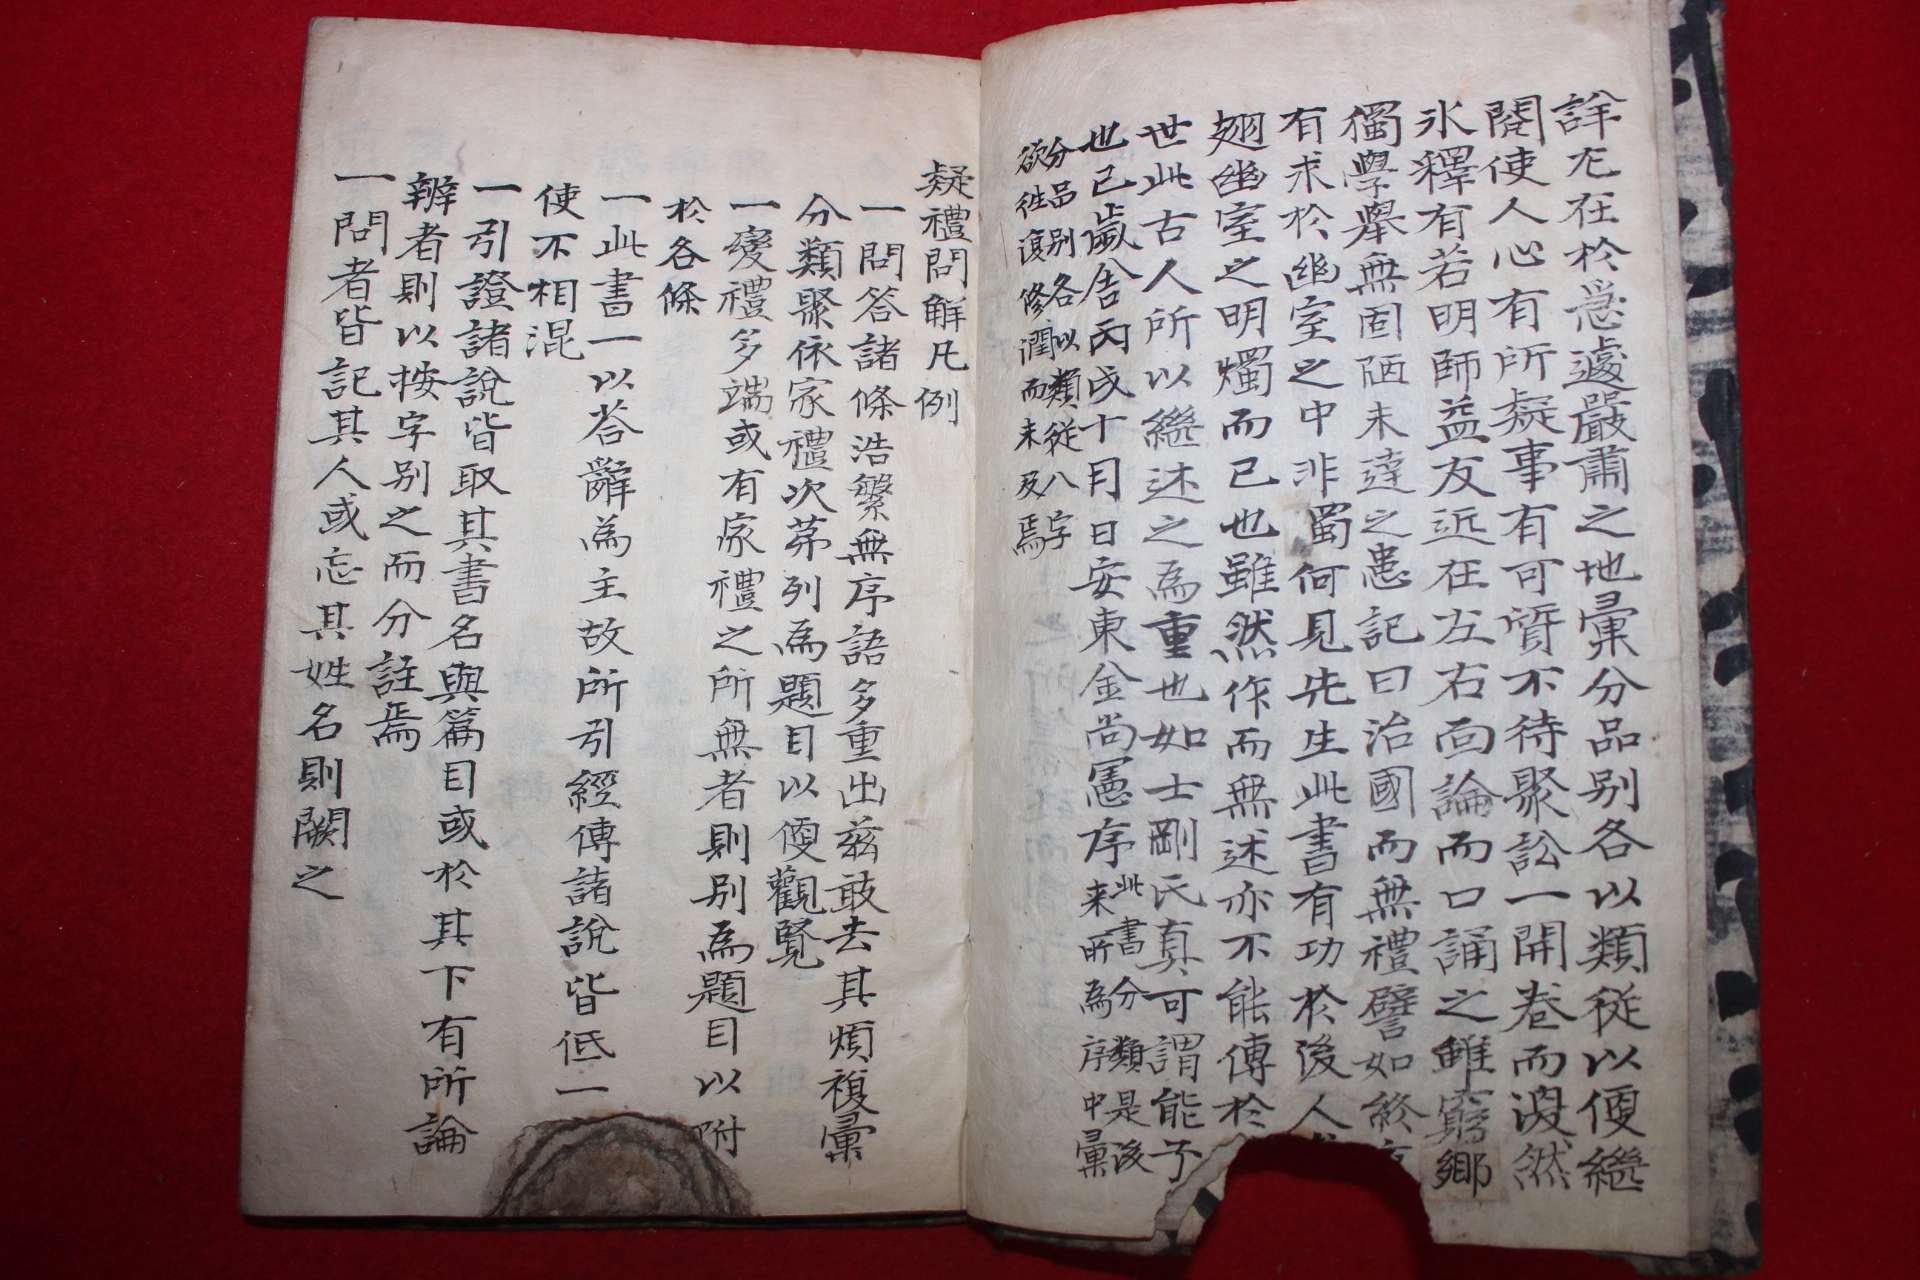 詳尤在於急遽嚴肅之地彙分品别各以類從以便繼
閱使人心有所疑事有可質不待聚訟一開卷而渙然
氷釋有若明師益友近在左右面論而口誦之雖窮鄉
獨學擧無固陋未達之患記曰治國而無禮譬如終
有求於幽室之中非蜀何見先生此書有功於後人
翅幽室之明燭而已也雖然作而無述亦不能傳於
世此古人所以繼述之為重也如士剛氏真可謂能子
也已歲舍丙戌十月日安東金尚憲序
此書分類是後
来所為序中彙
分品别各以類從八字
欲徃復修潤而未及焉
疑禮問解凡例
一問答諸條浩繁無序語多重出兹敢去其煩複彙
分類聚依家禮次苐列為題目以便觀覽
一變禮多端或有家禮之所無者則别為題目以附
於各條
一此書一以答辭為主故所引經傳諸說皆低一
使不相混
一引證諸說皆取其書名與篇目或於其下有所論
辨者則以按字别之而分註焉
一問者皆記其人或忘其姓名則闕之